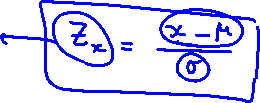 Zₓ = (x - μ) / σ